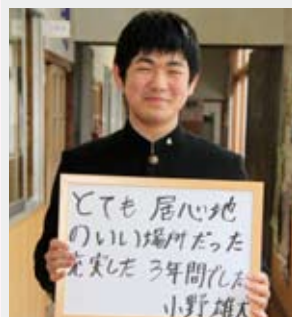 とても 居心地
のいい場所だった
充実した 3年間でした
小野雄大